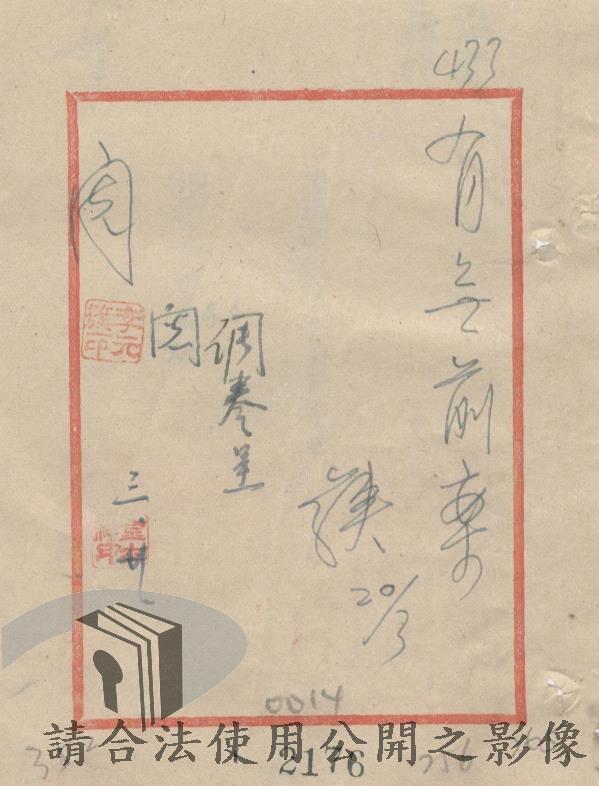 433
有無前案
20/3
調卷呈
閱
閱
三、廿
0014
2176
256
請合法使用公開之影像